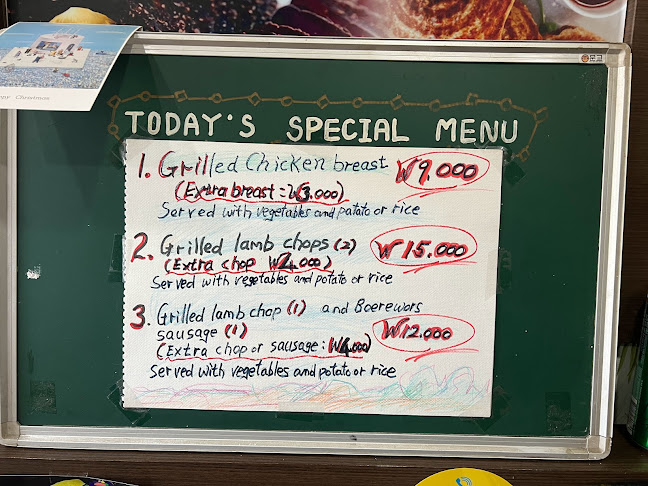 TODAY'S SPECIAL MENU
1. Grilled Chicken breast ₩9.000
(Extra breast = ₩3.000)
Served with vegetables and patato or rice
2. Grilled lamb chops (2) ₩15.000
(Extra chop ₩4.000)
Served with vegetables and potato or rice
3. Grilled lamb chop (1) and Boerewors
sausage (1) ₩12.000
(Extra chop or sausage: ₩4.000)
Served with vegetables and potato or rice
Christmas